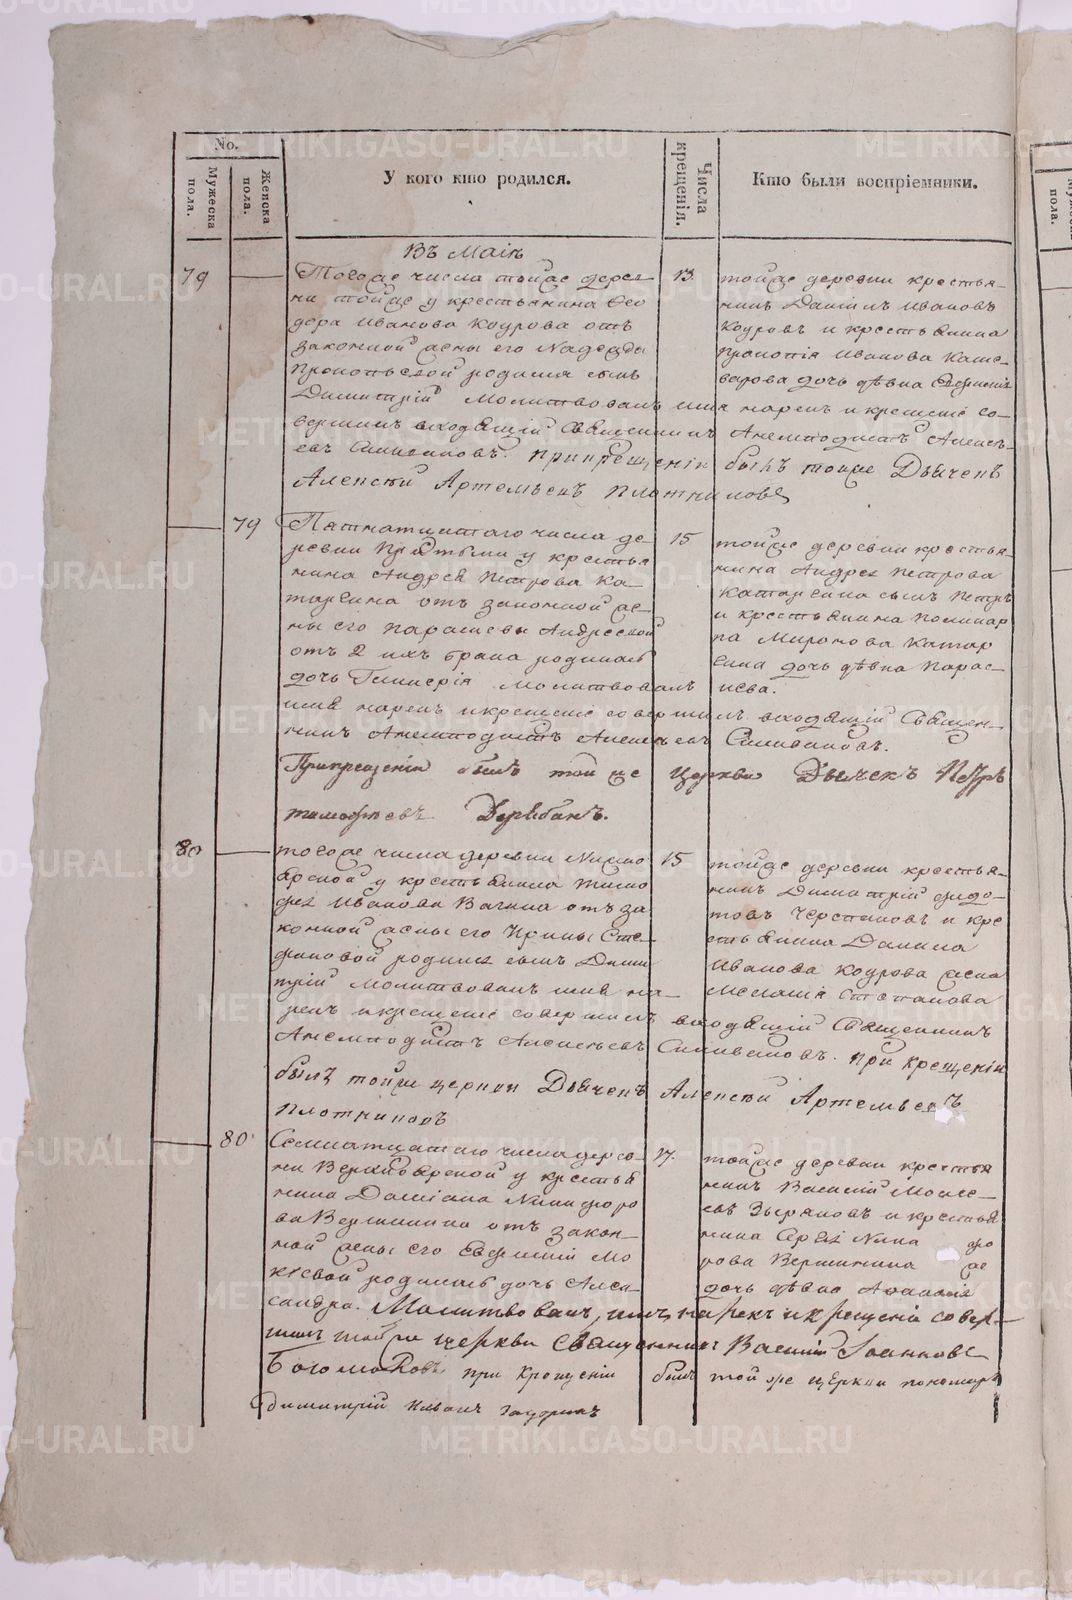 No.
Мужеска пола.
Женска пола.
У кого кто родился.
Числа крещенія.
Кто были воспріемники.
Въ Маіѣ
79
Тогоже числа тойже дерев-
ни тойже у крестьянина Ѳео
дора Иванова Кодрова отъ
законной жены его Надежды
Прокопьевой родился сынъ
Димитрій Молитвовалъ имя нарекъ и крещеніе со-
вершилъ входящій Священникъ Анемподистъ Алексѣ-
евъ Селивановъ. При крещеніи былъ тойже Дьячекъ
Алексѣй Артемьевъ Плотниковъ
13
тойже деревни крестья-
нинъ Даніилъ Ивановъ
Кодровъ и крестьянина
Прокопія Иванова
дочь дѣвка
79
Пятнатцатаго числа де-
ревни у крестья
нина Андрея Петрова Ка-
таргина отъ законной же-
ны его Парасковьи Андреевой
отъ 2 ихъ брака родилась
дочь Гликерія Молитвовалъ
имя нарекъ и крещеніе совершилъ входящій Священ-
никъ Анемподистъ Алексѣевъ Селивановъ.
При крещеніи былъ той же церкви Дьячекъ Петръ
Тимофѣевъ
15
тойже деревни крестья-
нина Андрея Петрова
Катаргина сынъ Петръ
и крестьянина Поликар
па Миронова Катар
гина дочь дѣвка Парас-
кева.
80
тогоже числа деревни Нижно
ярской у крестьянина Тимо
фея Иванова Вагина отъ за
конной жены его Ирины Сте-
фановой родился сынъ Дими
трій Молитвовалъ имя на-
рекъ и крещеніе совершилъ входящій Священникъ
Анемподистъ Алексѣевъ Селивановъ. При крещеніи
былъ тойже церкви Дьячекъ Алексѣй Артемьевъ
Плотниковъ
15
тойже деревни крестья-
нинъ Димитрій Федо-
товъ Черепановъ и кре
стьянина Данила
Иванова Кодрова жена
Меланія Степанова
80
Семнатцатаго числа дерев-
ни Верхноярской у крестья
нина Даміана Никифоро
ва Вершинина отъ закон-
ной жены его Евфиміи Мо
кіевой родилась дочь Алек-
сандра. Молитвовалъ, имя нарекъ и крещеніе совер-
шилъ тойже церкви Священникъ Василій Іоанновъ
Богомоловъ при крещеніи былъ той же церкви пономарь
Димитрій
17.
тойже деревни крестья
нинъ Василій Моисе-
евъ Зыряновъ и крестья
нина Никифо
рова Вершинина
дочь дѣвка
METRIKI.GASO-URAL.RU